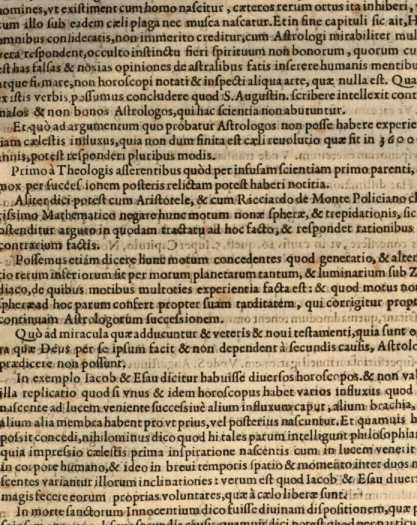 nomines, vt existiment cum homo nascitur, cæteros rerum ortus ita inhiberi,
cum illo sub eadem cæli plaga nec musca nascatur. Et in fine capituli sic ait, H
omnibus consideratis, non immerito creditur, cum Astrologi mirabiliter mul
vera respondent, occulto instinctu fieri spirituum non bonorum, quorum cu
est has falsas & noxias opiniones de astralibus fatis inserere humanis mentibu
atque firmare, non horoscopi notati & inspecti aliqua arte, quæ nulla est. Qua
ex istis verbis possumus concludere quod S. Augustin. scribere intellexit cont
malos & non bonos Astrologos, qui hac scientia non abutuntur.
Et quò ad argumentum quo probatur Astrologos non posse habere experie
tiam cælestis influxus, quia non dum finita est cæli reuolutio quæ fit in 3 6 0 0 0
annis, potest responderi pluribus modis.
Primo à Theologis asserentibus quòd per infusam scientiam primo parenti,
quox per succes.ionem posteris relictam potest haberi notitia.
Aliter dici potest cum Aristotele, & cum Ricciardo de Monte Policiano cl
rissimo Mathematico negare hunc motum nonæ spheræ, & trepidationis, sic
ostenditur arguto in quodam tractatu ad hoc facto, & respondet rationibus
contrarium factis.
Possemus etiam dicere hunc motum concedentes quod generatio, & alter
tio rerum inferiorum fit per motum planetarum tantum, & luminarium sub Z
diaco, de quibus motibus multoties experientia facta est: & quod motus non
spheræ ad hoc parum confert propter suam tarditatem, qui corrigitur prop
continuam Astrologorum successionem.
Quò ad miracula quæ adducuntur & veteris & noui testamenti, quia sunt op
ra quæ Deus per se ipsum facit & non dependent à secundis causis, Astrolo
prædicere non possunt.
In exemplo Iacob & Esau dicitur habuisse diuersos horoscopos. & non val
illa replicatio quod si vnus & idem horoscopus habet varios influxus quod
nascente ad lucem veniente successiuè alium influxum caput, alium brachia,
alium alia membra habent pro vt prius, vel posterius nascuntur. Et quamuis h
possit concedi, nihilominus dico quod hi tales parum intelligunt philosophiam
quia impressio cælestis prima inspiratione nascentis cum in lucem venerit
in corpore humano, & ideo in breui temporis spatio & momento inter duos
scentes variantur illorum inclinationes: verum est quod Iacob & Esau diuer
magis fecere eorum proprias voluntates, quæ à cælo liberæ sunt.
In morte sanctorum Innocentium dico fuisse diuinam dispositionem, quæ